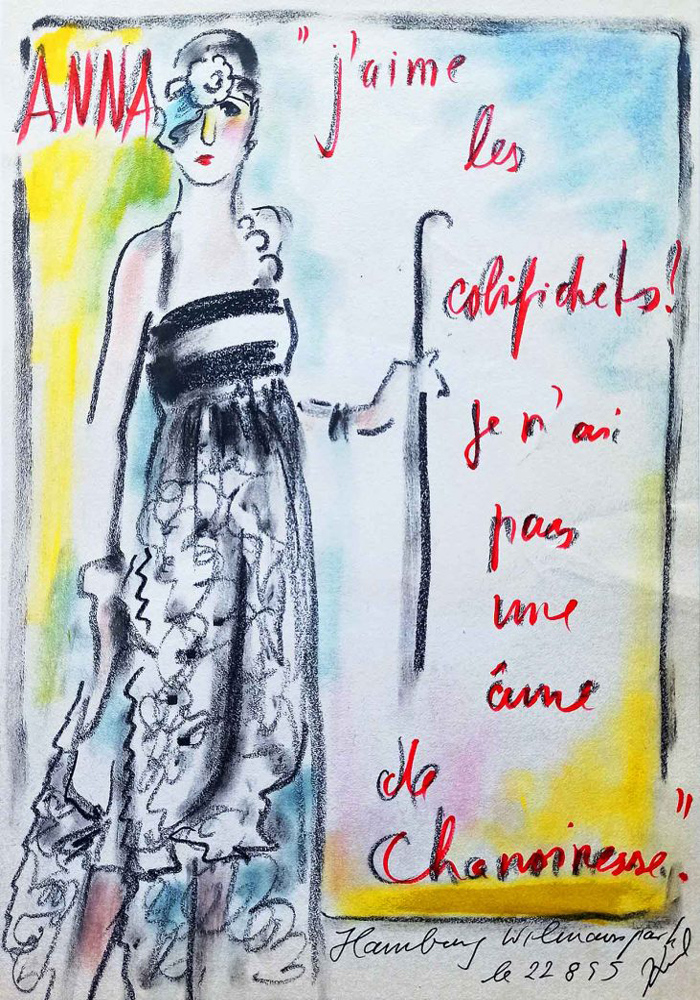 ANNA
"j'aime
les
colifichets!
je n'ai
pas
une
âme
de
Chanoinesse."
Hamburg Wilmanspark
le 22 8 95